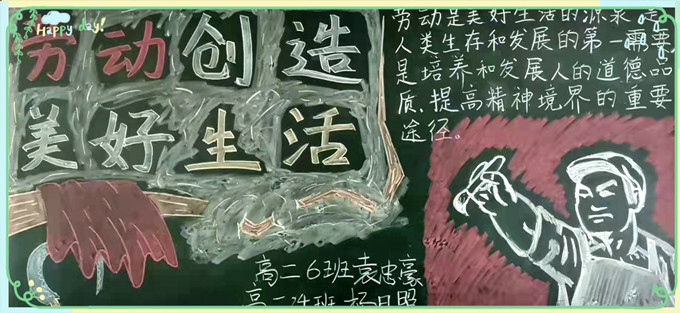 Happy day!
劳动创造
美好生活
劳动是美好生活的源泉 是
人类生存和发展的第一需要
是培养和发展人的道德品
质、提高精神境界的重要
途径。
高二6班袁忠豪
高二4班杨日照